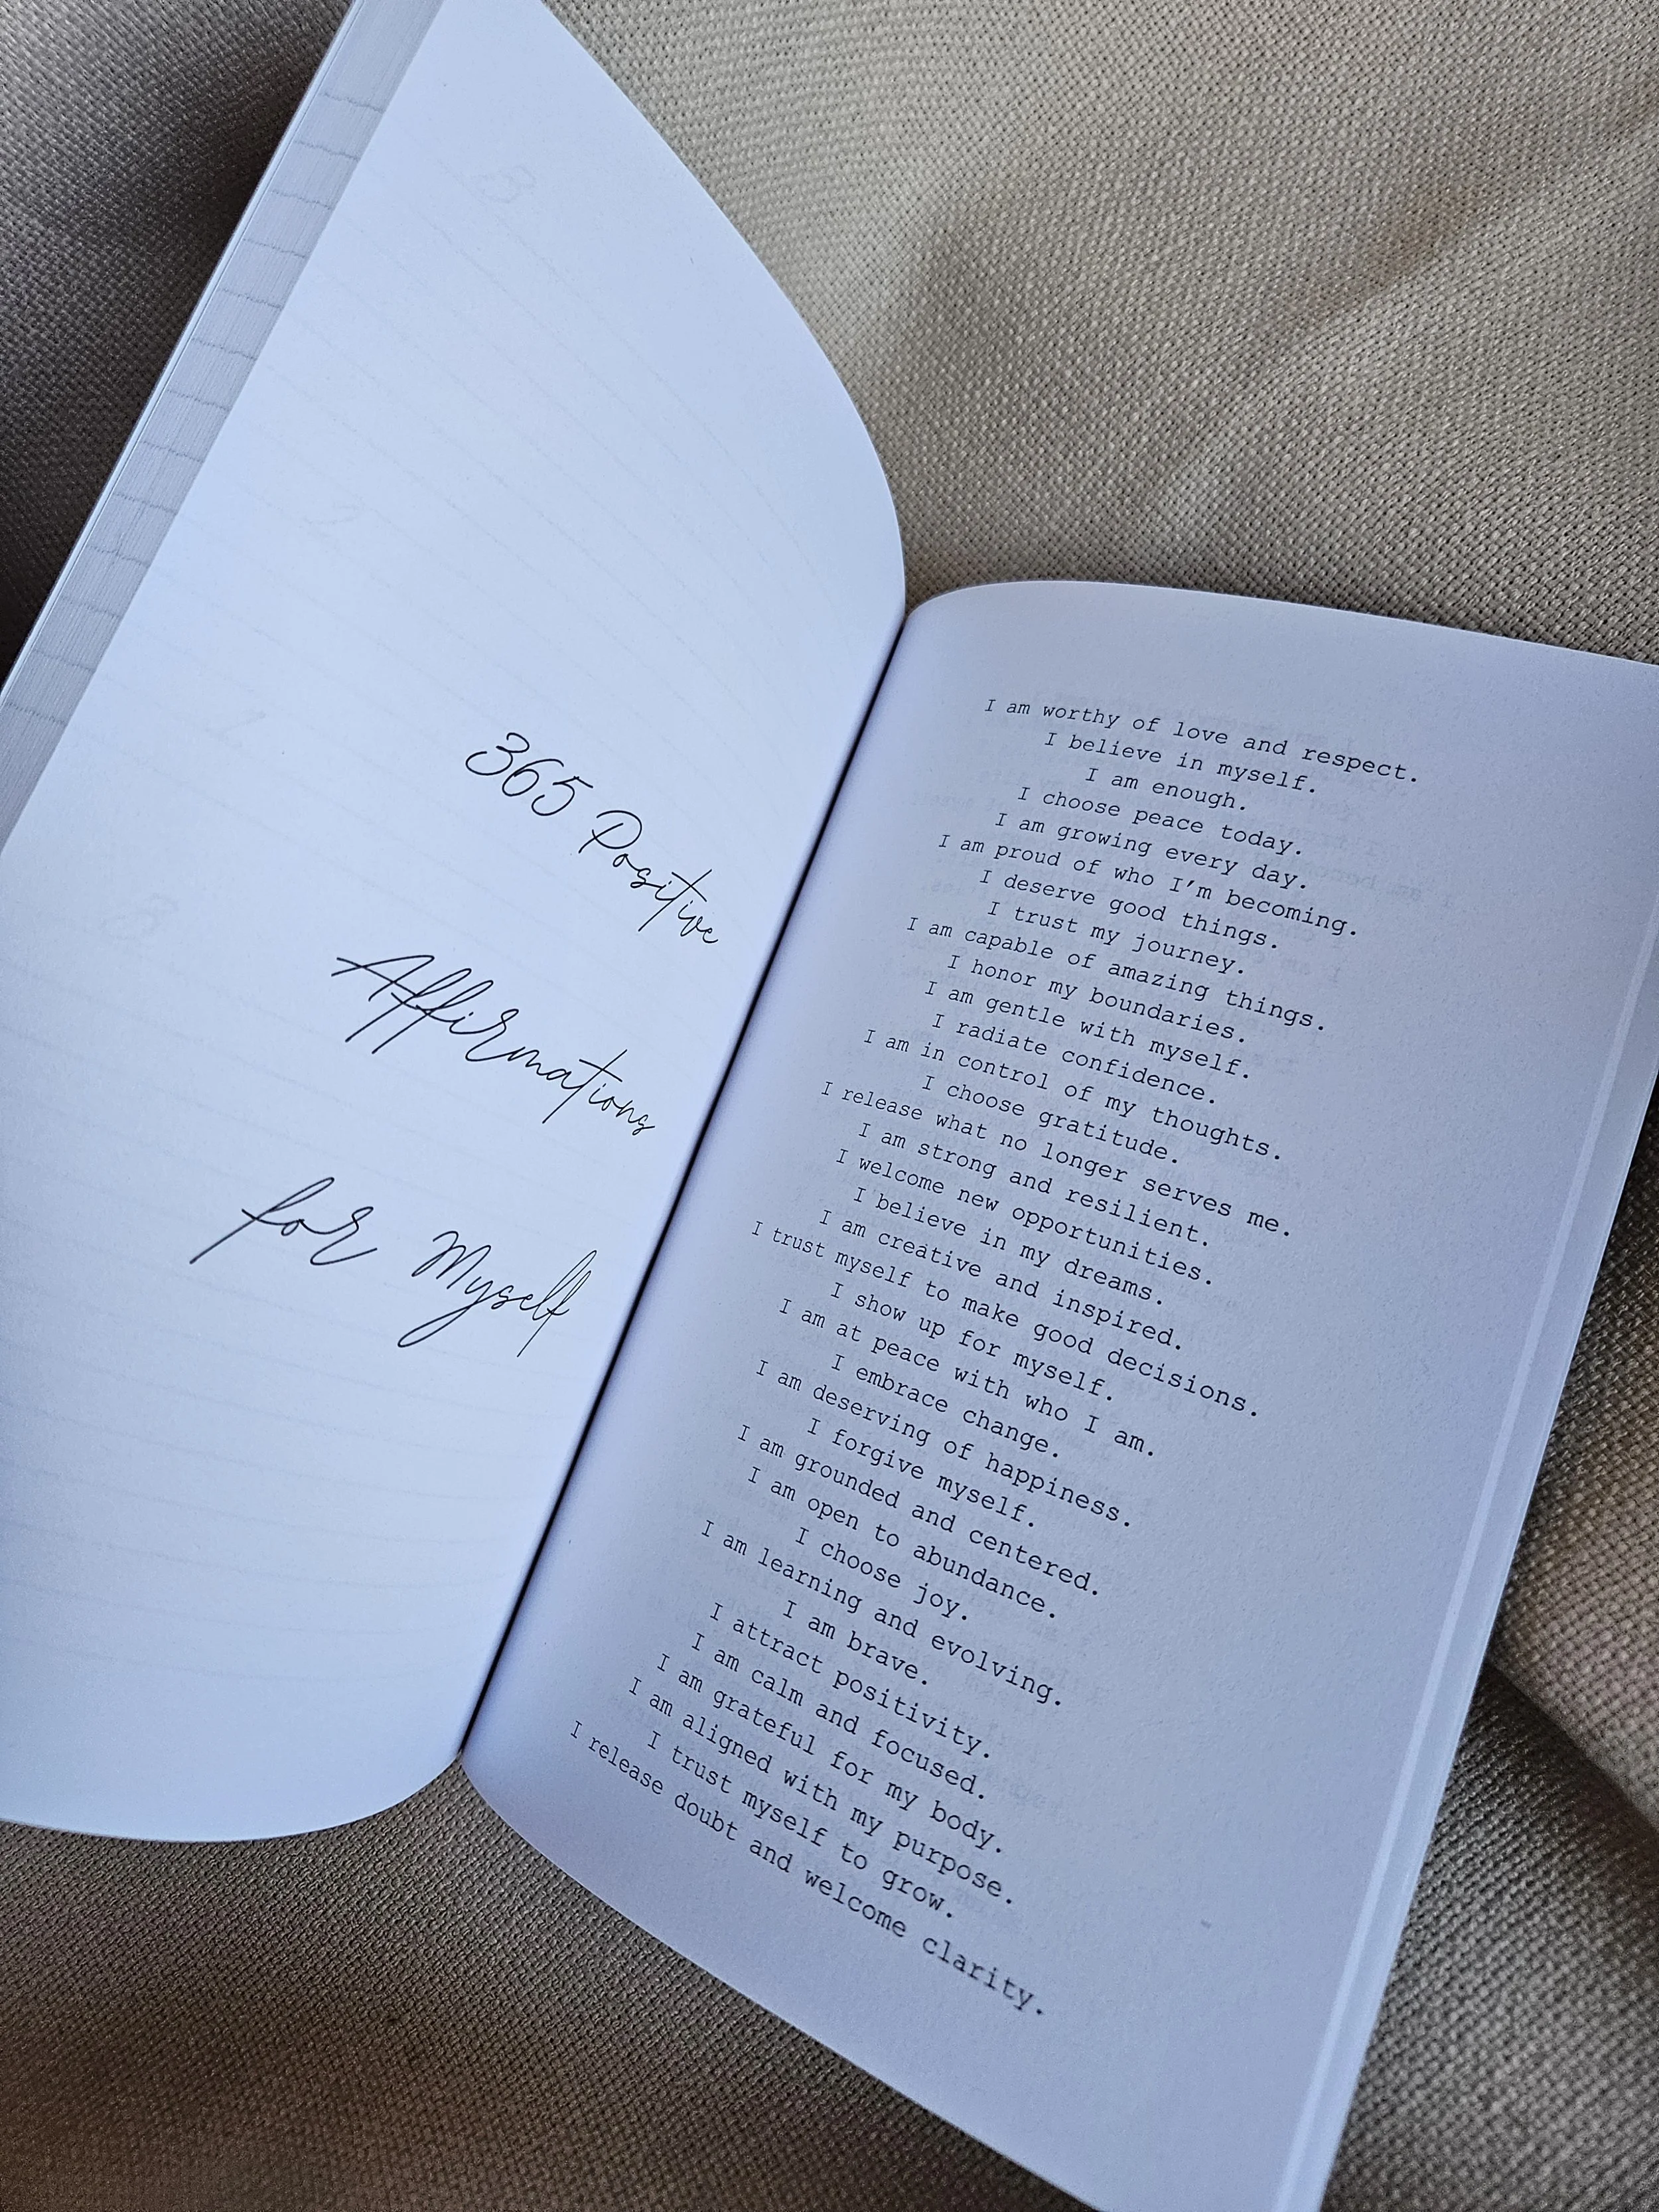 365 Positive
Affirmations
for Myself
I am worthy of love and respect.
I believe in myself.
I am enough.
I choose peace today.
I am growing every day.
I am proud of who I'm becoming.
I deserve good things.
I trust my journey.
I am capable of amazing things.
I honor my boundaries.
I am gentle with myself.
I radiate confidence.
I am in control of my thoughts.
I choose gratitude.
I release what no longer serves me.
I am strong and resilient.
I welcome new opportunities.
I believe in my dreams.
I am creative and inspired.
I trust myself to make good decisions.
I show up for myself.
I am at peace with who I am.
I embrace change.
I am deserving of happiness.
I forgive myself.
I am grounded and centered.
I am open to abundance.
I choose joy.
I am learning and evolving.
I am brave.
I attract positivity.
I am calm and focused.
I am grateful for my body.
I am aligned with my purpose.
I trust myself to grow.
I release doubt and welcome clarity.